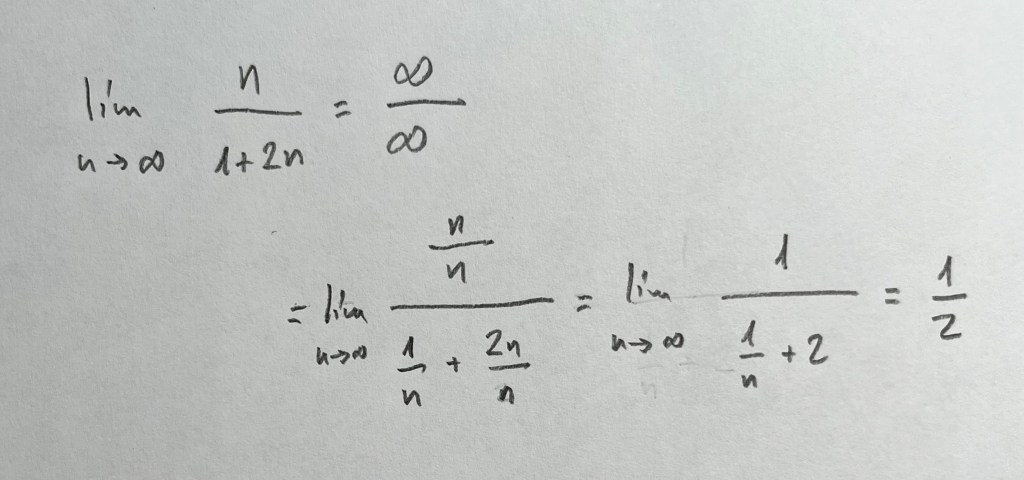 lím n→∞ n/(1+2n) = ∞/∞
= lím n→∞ (n/n)/(1/n + 2n/n) = lím n→∞ 1/(1/n + 2) = 1/2